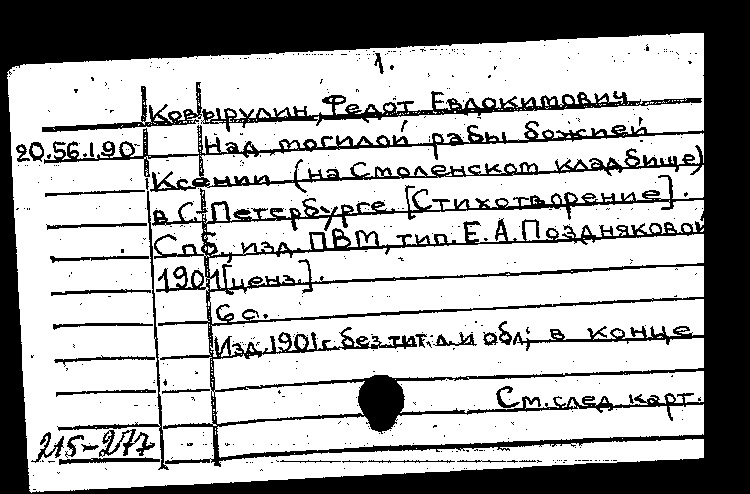 1.
Ковырулин, Федот Евдокимович
20.56.1.90 Над могилой рабы божией
Ксении (на Смоленском кладбище)
в С.-Петербурге. [Стихотворение].
Спб., изд. ПВМ, тип. Е. А. Поздняковой
1901 [ценз.].
6 с.
Изд. 1901 г. без тит. л. и обл.; в конце
См. след. карт.
215-277